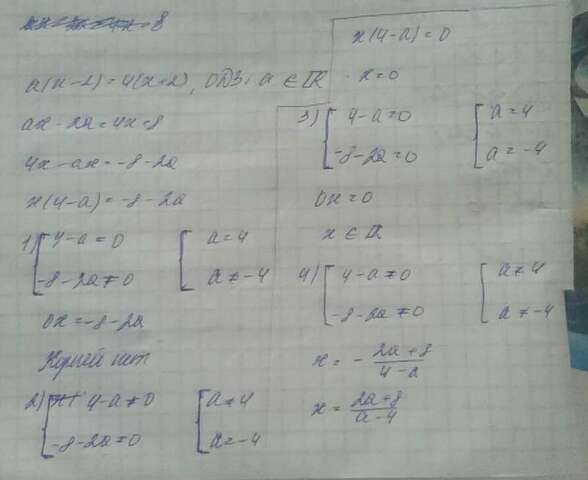 a(x-2)=4(x+2), ОДЗ: a ∈ R
ax-2a=4x=8
4x-ax=-8-2a
x(4-a)=-8-2a
1) [ 4-a=0 [ a=4
-8-2a≠0 a≠-4
0x=-8-2a
Корней нет
2) [ 4-a≠0 [ a≠4
-8-2a=0 a=-4
x(4-a)=0
x=0
3) [ 4-a=0 [ a=4
-8-2a=0 a=-4
0x=0
x ∈ R
4) [ 4-a≠0 [ a≠4
-8-2a≠0 a≠-4
x = - (2a+8)/(4-a)
x = (2a+8)/(a-4)